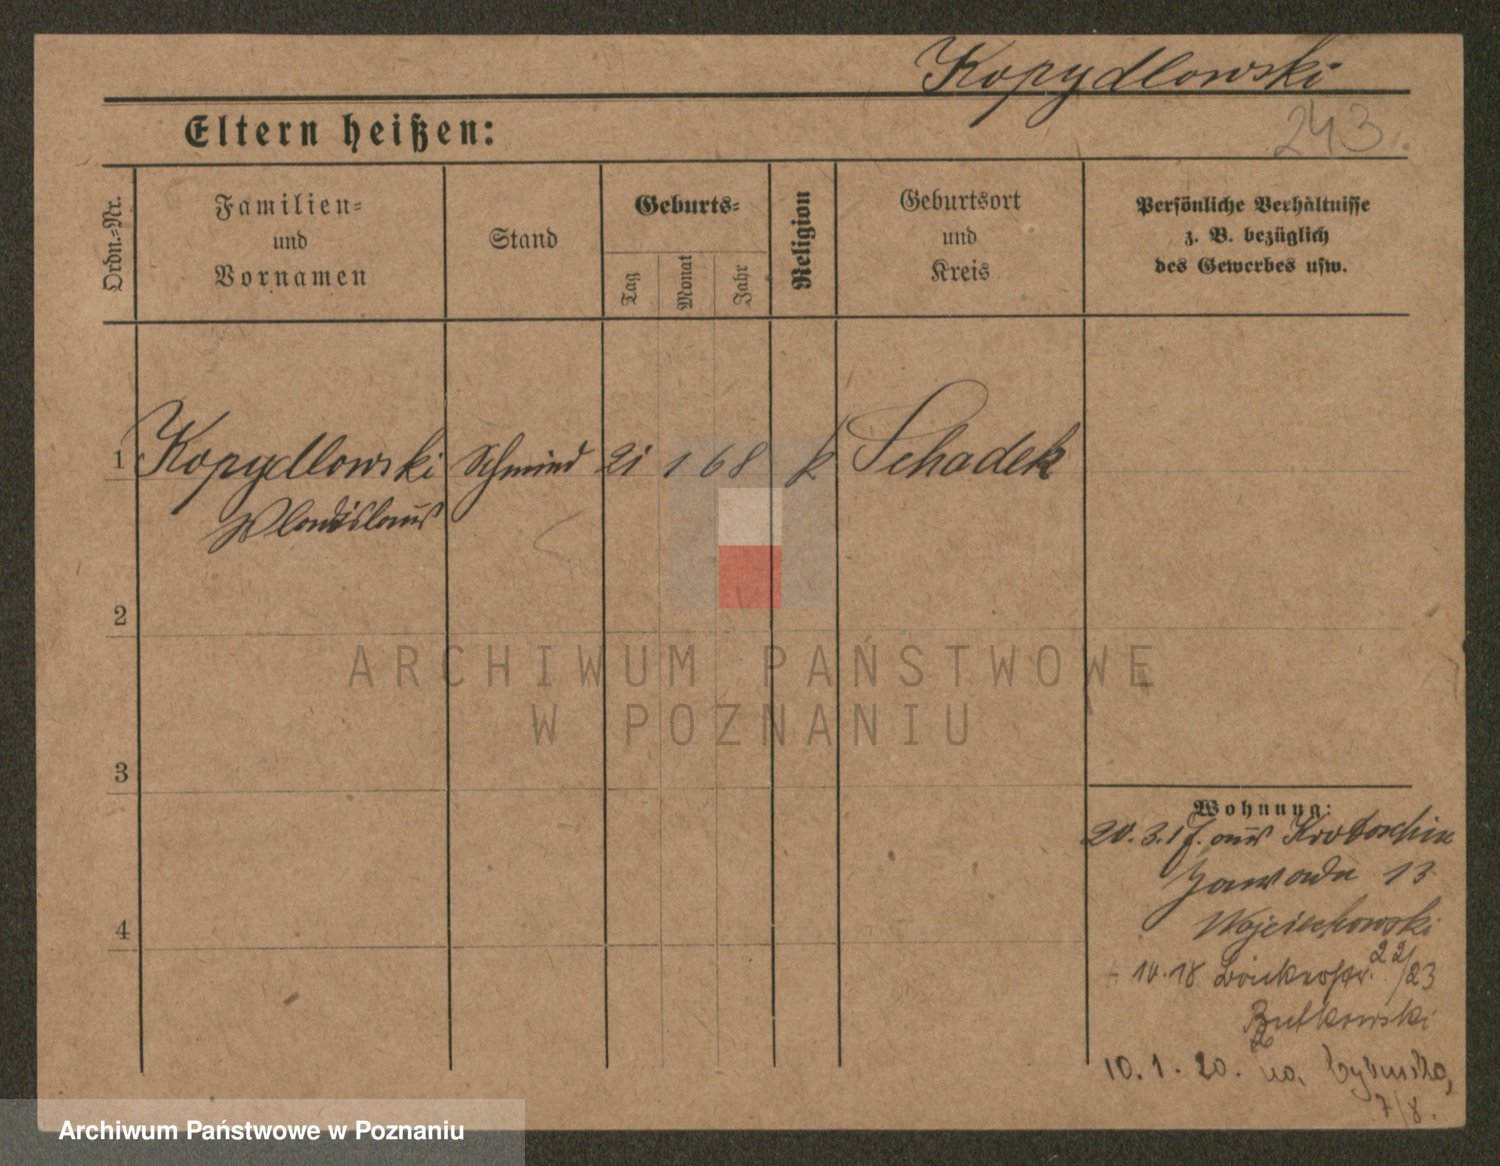 Kopydlowski
243.
Eltern heißen:
Ordn.=Nr.
Familien=
und
Vornamen
Stand
Geburts=
Tag
Monat
Jahr
Religion
Geburtsort
und
Kreis
Persönliche Verhältnisse
z. B. bezüglich
des Gewerbes usw.
1 Kopydlowski Schmied 21 1 68 k Schadek
Wladislaus
2
3
4
Wohnung:
20.3.17. aus Krotoschin
Zawade 13
Wojciechowski
10.18 22/23
Butkowski
10.1.20. na Cybińska,
7/8.
ARCHIWUM PAŃSTWOWE
W POZNANIU
Archiwum Państwowe w Poznaniu